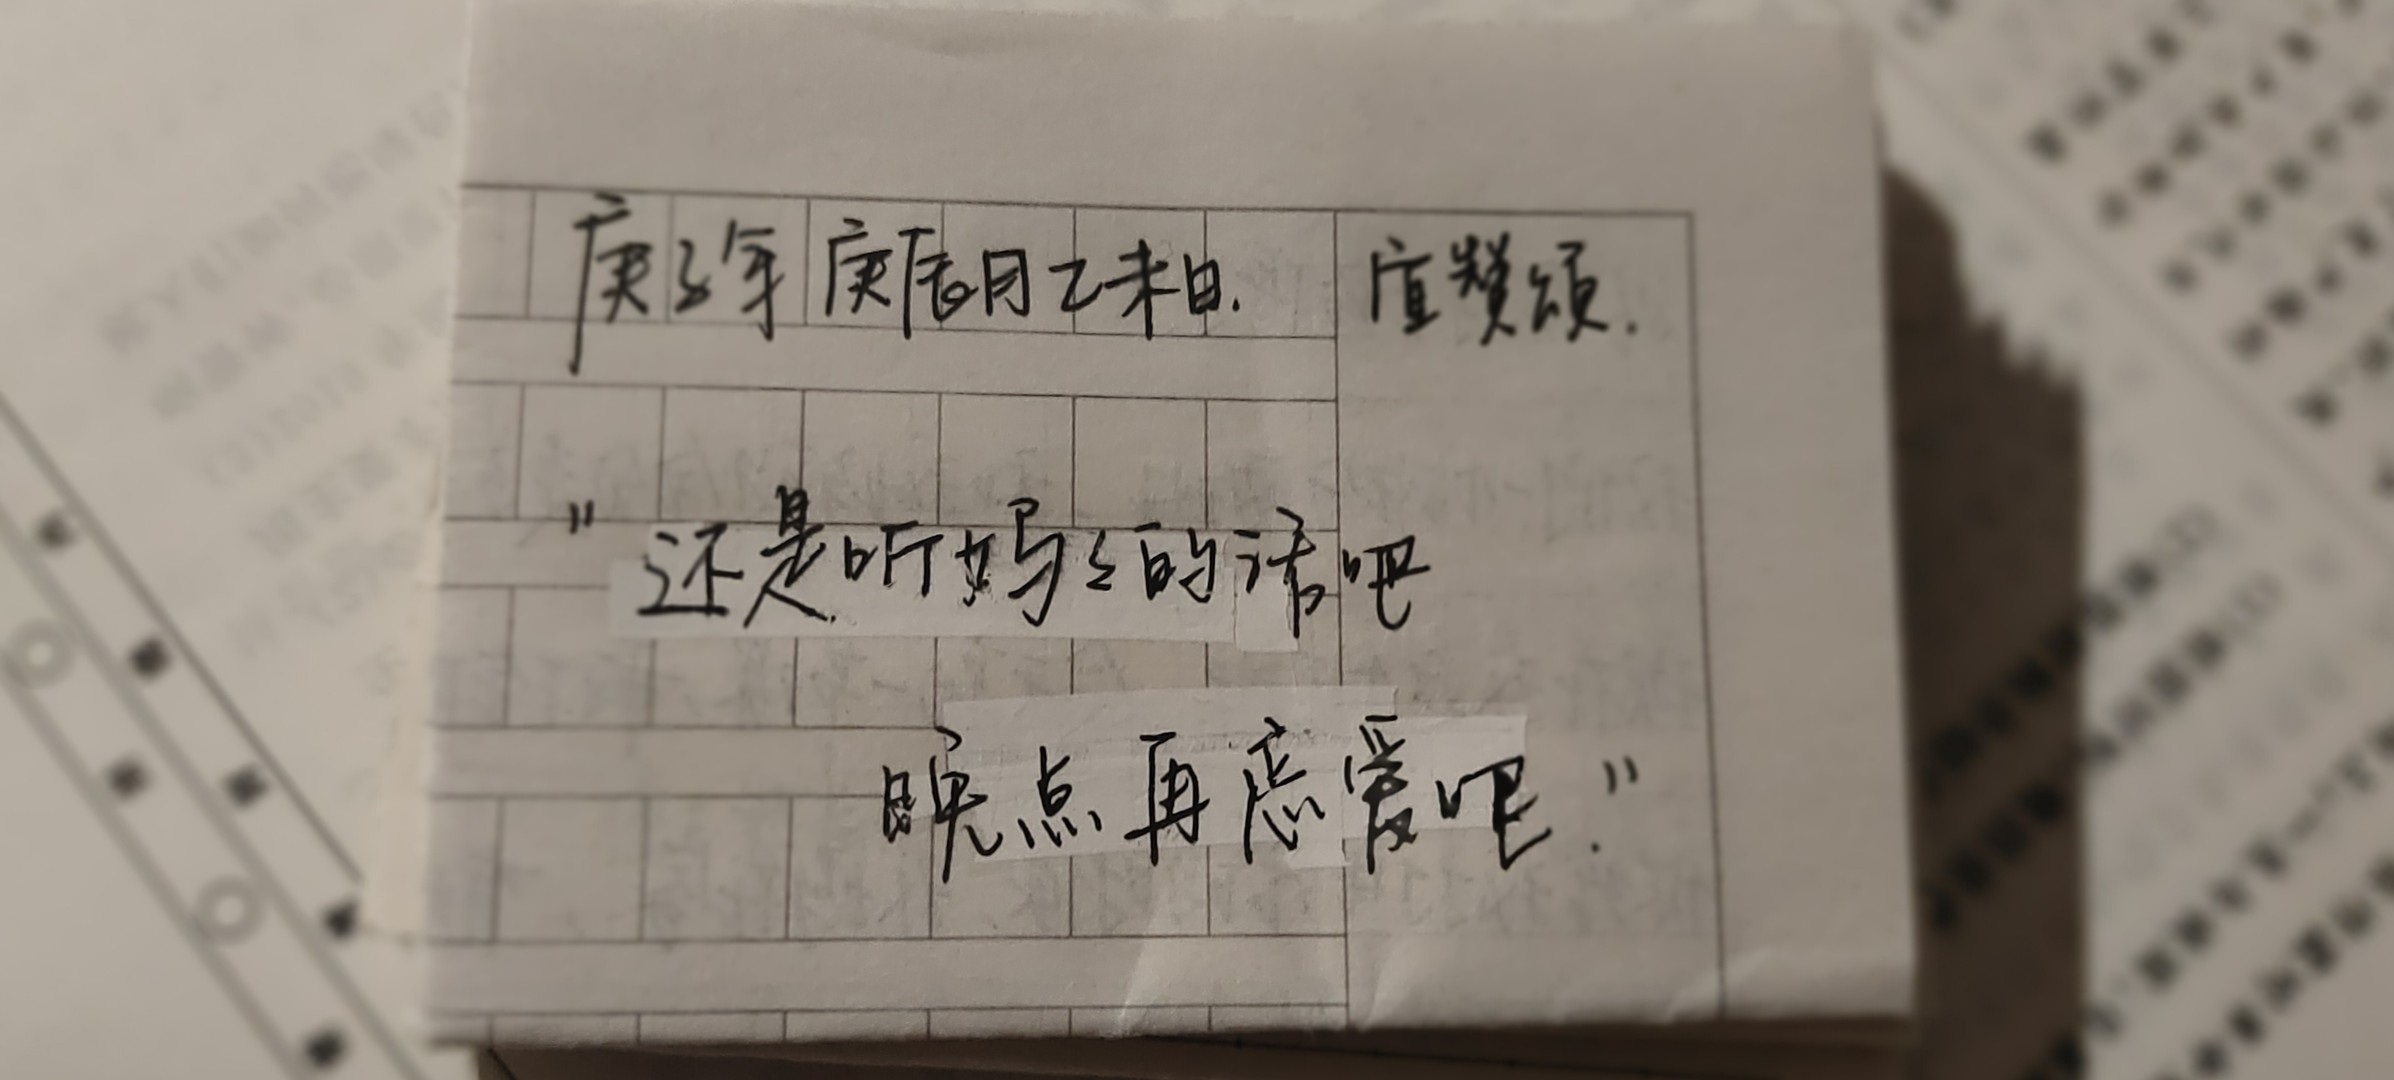 庚子年 庚辰月乙未日. 宜赞颂.
"还是听妈々的话吧
晚点再恋爱吧."